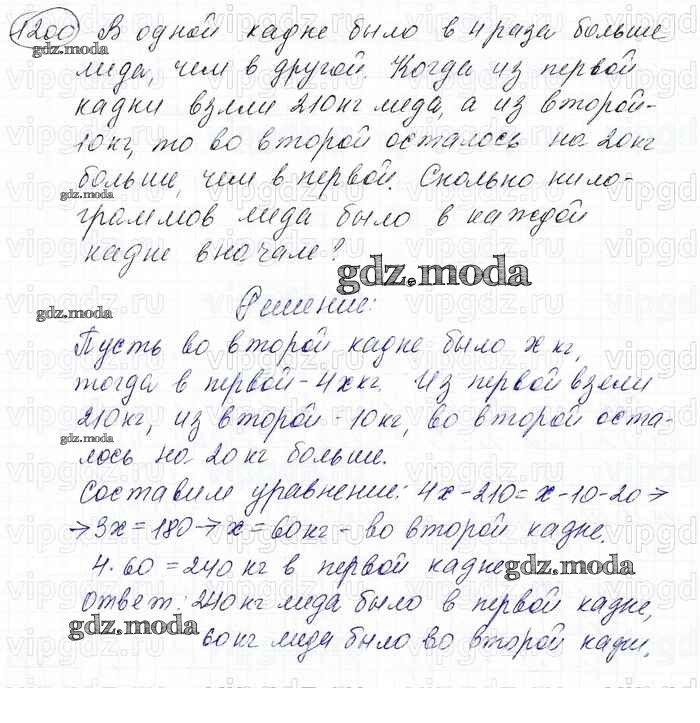 1200 В одной кадке было в 4 раза больше
gdz.moda
меда, чем в другой. Когда из первой
кадки взяли 210 кг меда, а из второй-
10 кг, то во второй осталось на 20 кг
больше, чем в первой. Сколько кило-
gdz.moda
граммов меда было в каждой
кадке вначале?
gdz.moda
Решение:
gdz.moda
Пусть во второй кадке было x кг,
тогда в первой - 4x кг. Из первой взяли
210 кг, из второй - 10 кг, во второй оста-
gdz.moda
лось на 20 кг больше.
Составим уравнение: 4x-210=x-10-20→
→3x=180→x=60 кг - во второй кадке.
4·60=240 кг в первой кадке
gdz.moda
Ответ: 240 кг меда было в первой кадке,
gdz.moda
60 кг меда было во второй кадке.